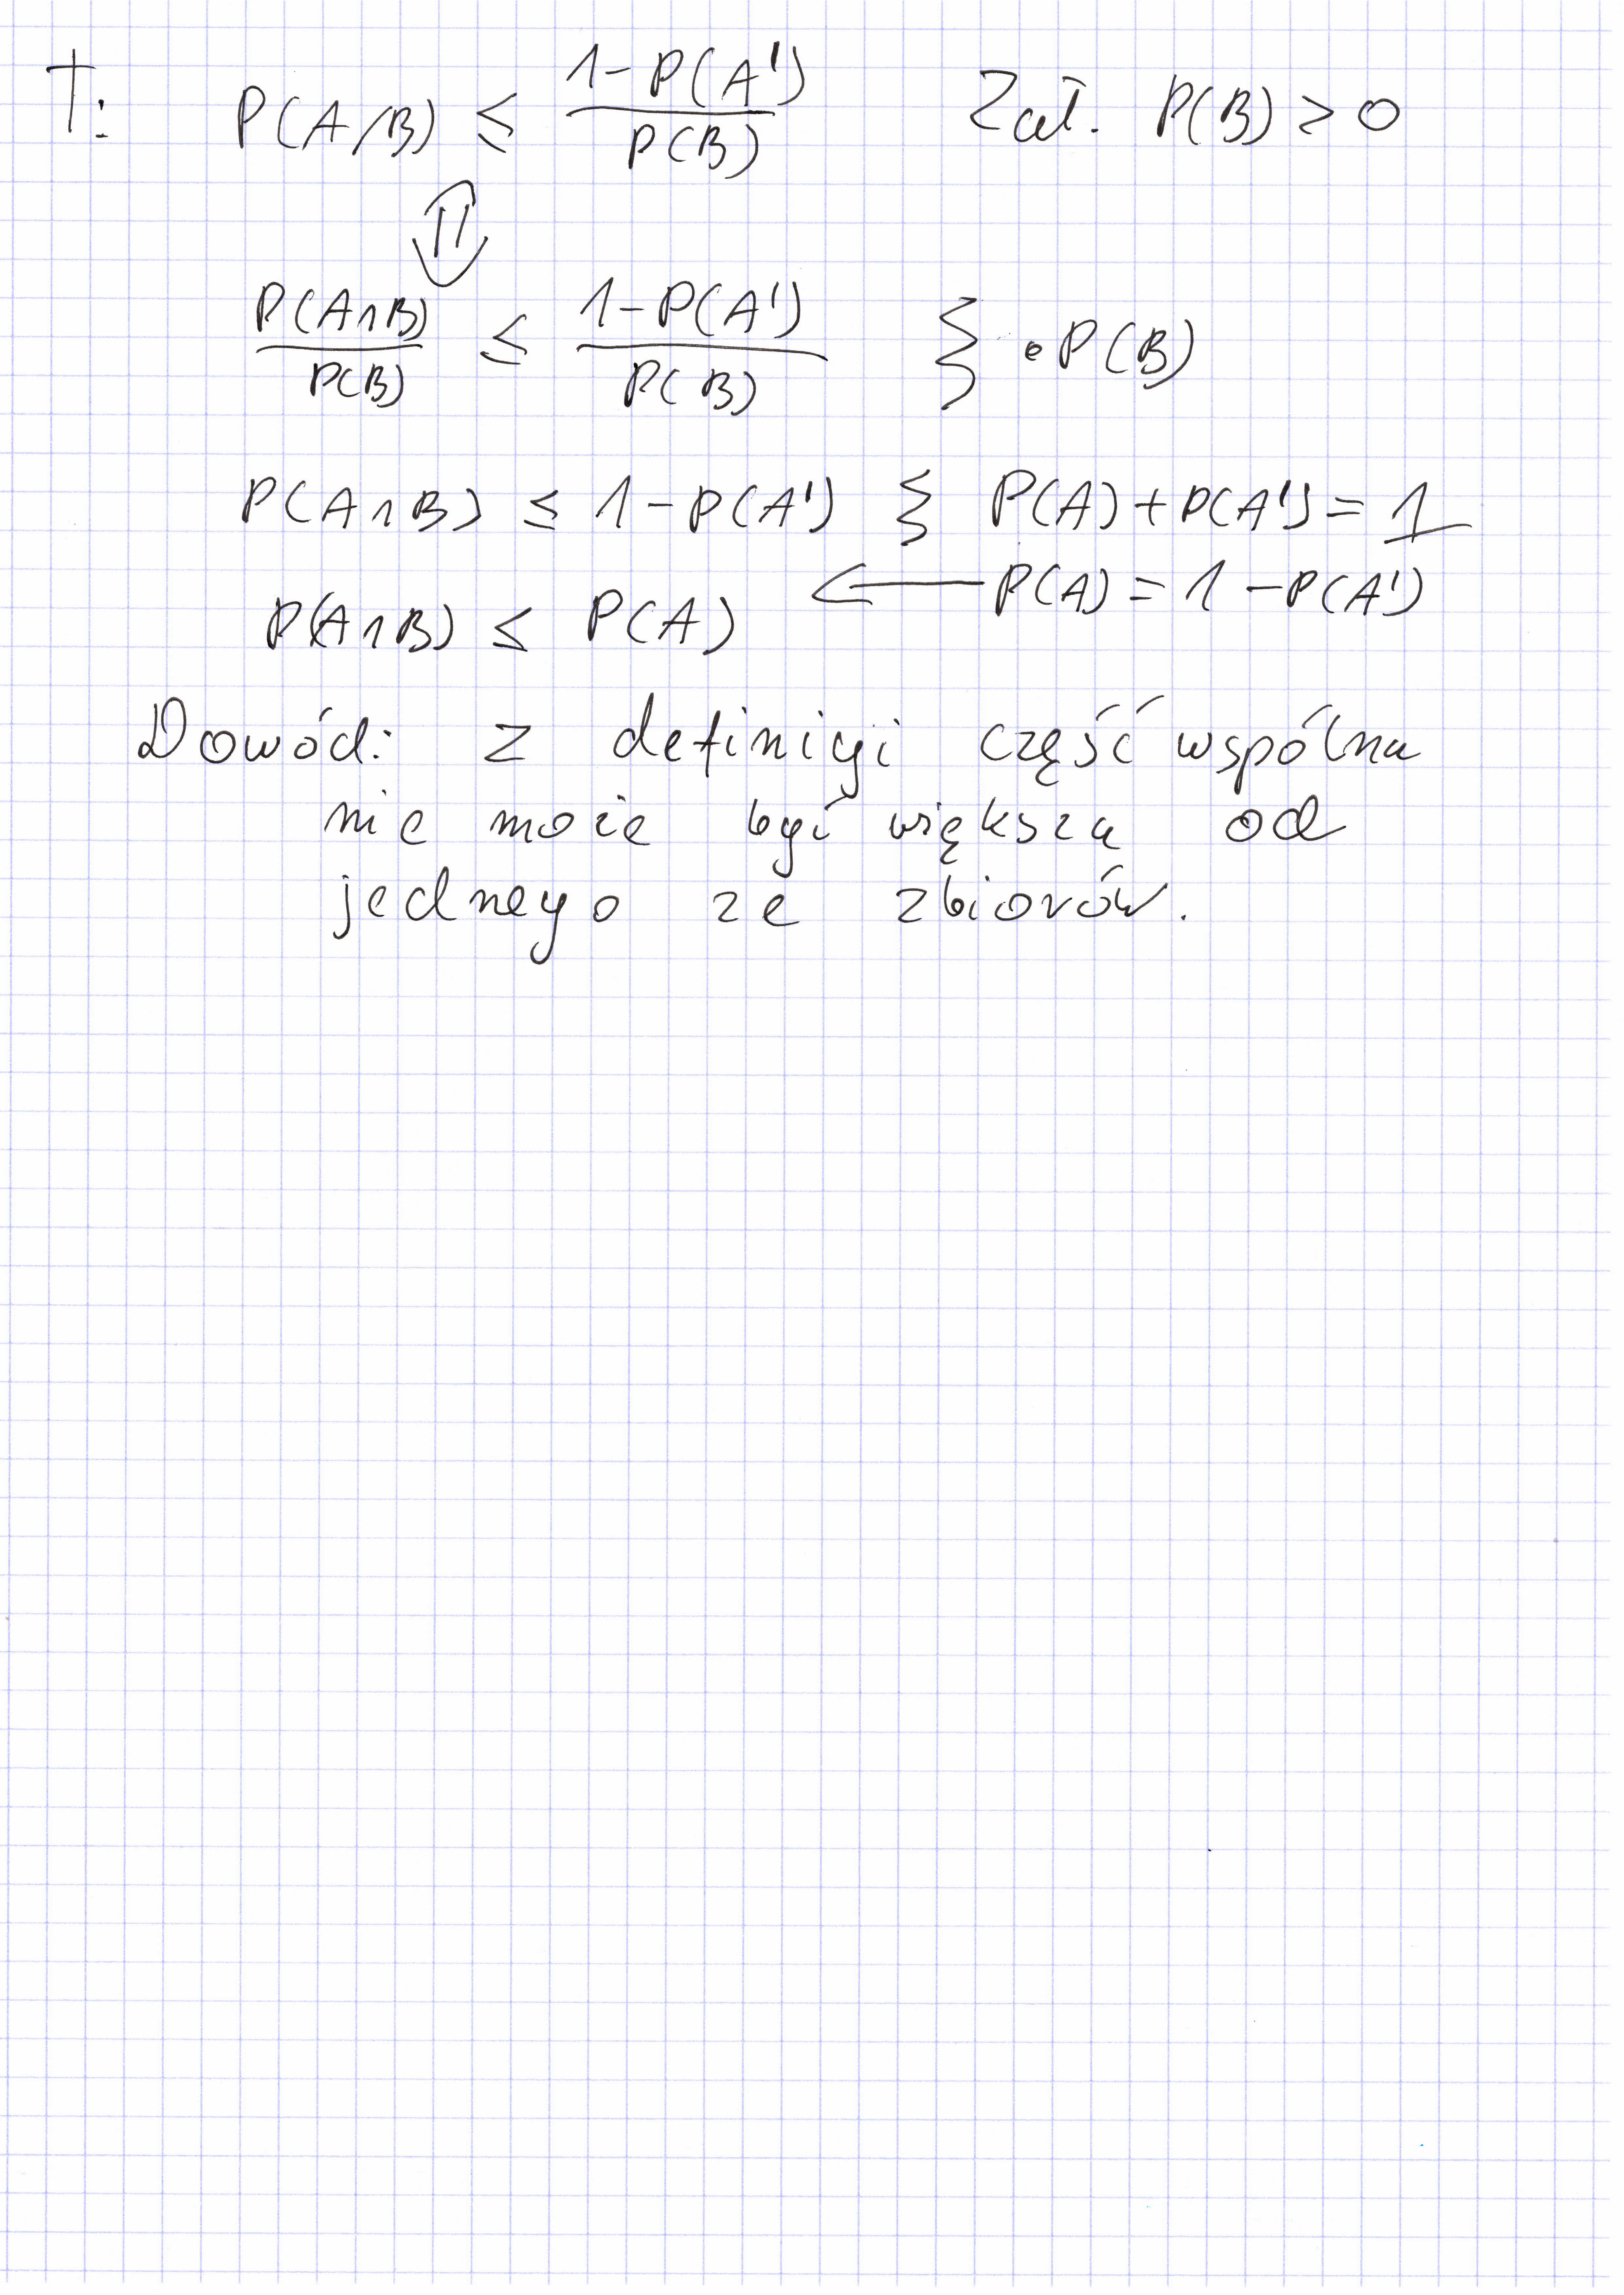 T: P(A/B) ≤ \frac{1-P(A')}{P(B)} Zał. P(B) > 0
⇕
\frac{P(A∩B)}{P(B)} ≤ \frac{1-P(A')}{P(B)} } • P(B)
P(A∩B) ≤ 1-P(A') } P(A)+P(A')=1
P(A∩B) ≤ P(A) ← P(A) = 1-P(A')
Dowód: z definicji część wspólna
nie może być większa od
jednego ze zbiorów.